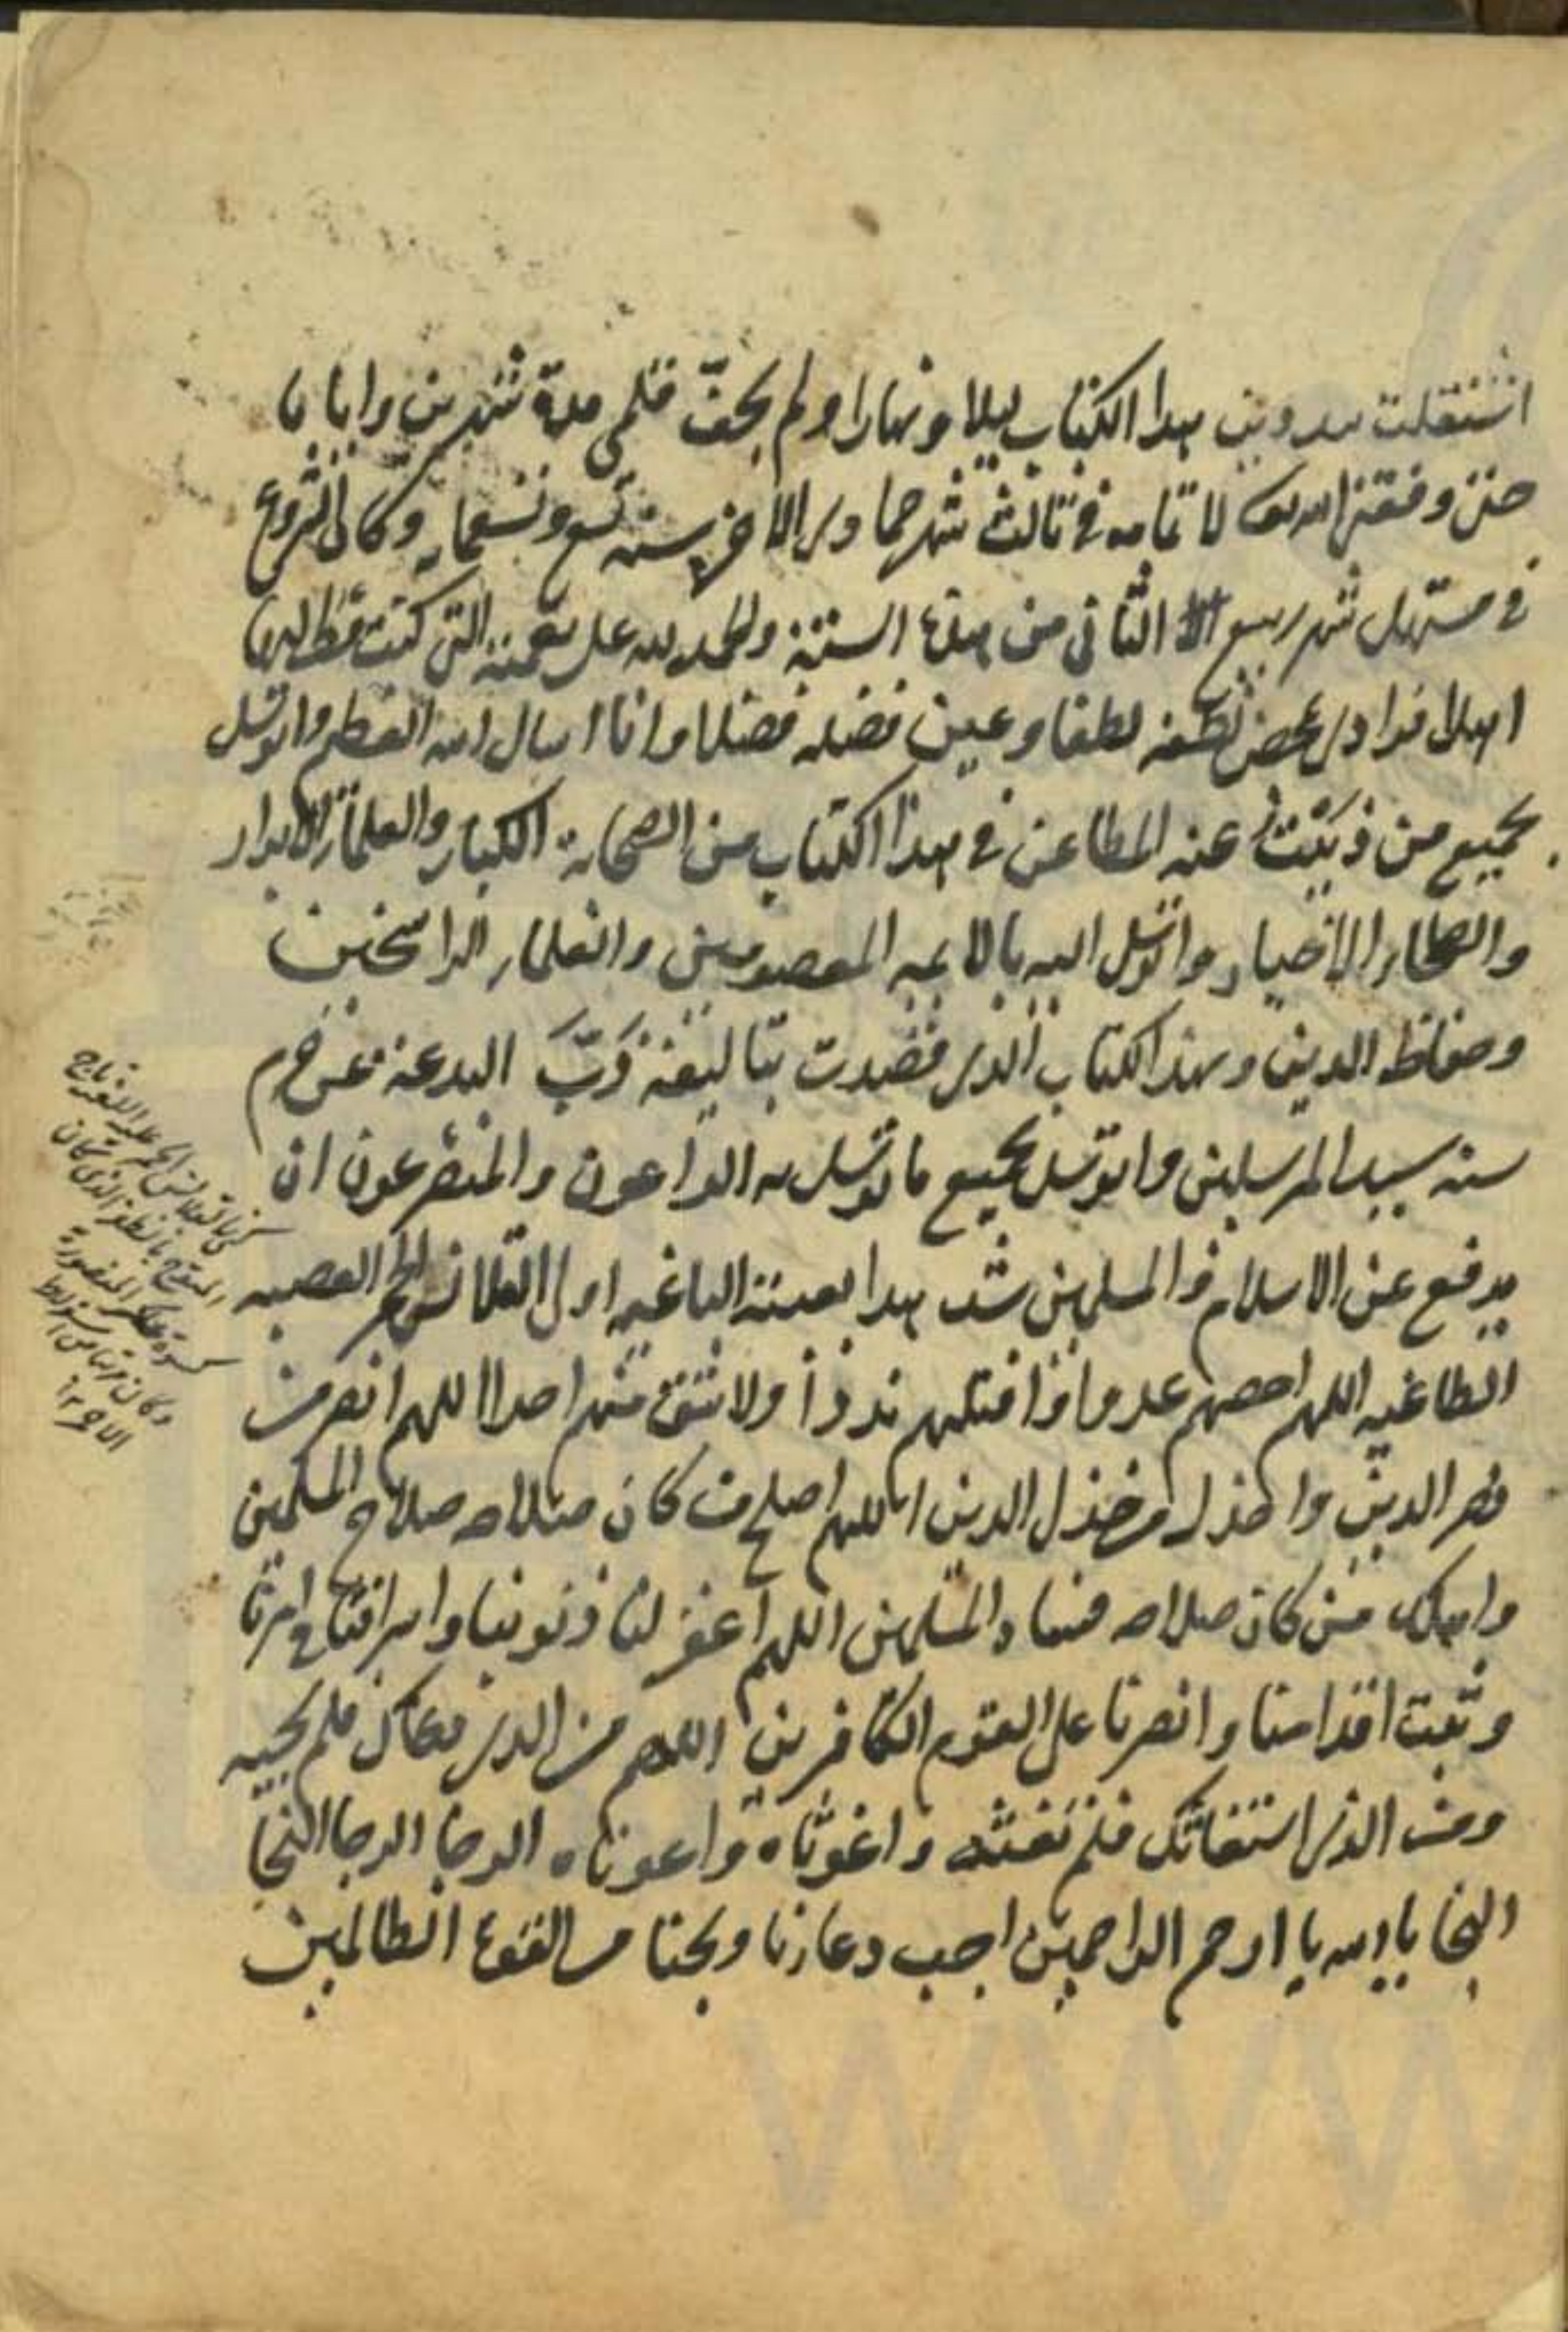 اشتغلت بتدوين هذا الكتاب ليلا ونهارا ولم يجفّ قلمي مدة شهرين واياما
حتى وفقني الله تعالى لاتمامه في ثالث شهر جمادى الاخر سنة تسع وتسعمايه وكان الشروع
في مستهل شهر ربيع الثاني من هذه السنة والحمد لله على نعمته التي كنت قط لها
اهلا فزادني محض لطفه لطفا وعين فضله فضلا وانا اسال الله العظيم واتوسل
بجميع من ذببت عنه المطاعن في هذا الكتاب من الصحابة الكبار والعلماء الابرار
والصلحاء الاخيار واتوسل اليه بالائمه المعصومين والعلماء الراسخين
وحفاظ الدين وبهذا الكتاب الذي قصدت بتاليفه ذَبَّ البدعة عن حرم
سنة سيد المرسلين واتوسل بجميع ما توسل به الداعون والمتضرعون ان
يدفع عن الاسلام والمسلمين شر هذا الفئة الباغيه اولي القلانس الحمر العصبه
الطاغيه اللهم احصهم عددا واقتلهم بددا ولا تبق منهم احدا اللهم انصر من
نصر الدين واخذل من خذل الدين اللهم اصلح من كان صلاحه صلاح المسلمين
واهلك من كان صلاحه فساد المسلمين اللهم اغفر لنا ذنوبنا واسرافنا في امرنا
وثبت اقدامنا وانصرنا على القوم الكافرين اللهم من الذي دعاك فلم تجبه
ومن الذي استغاثك فلم تغثه واغوثاه واعوناه الوحا الوحا النجا
النجا يا الله يا ارحم الراحمين اجب دعاءنا ونجنا من القوم الظالمين